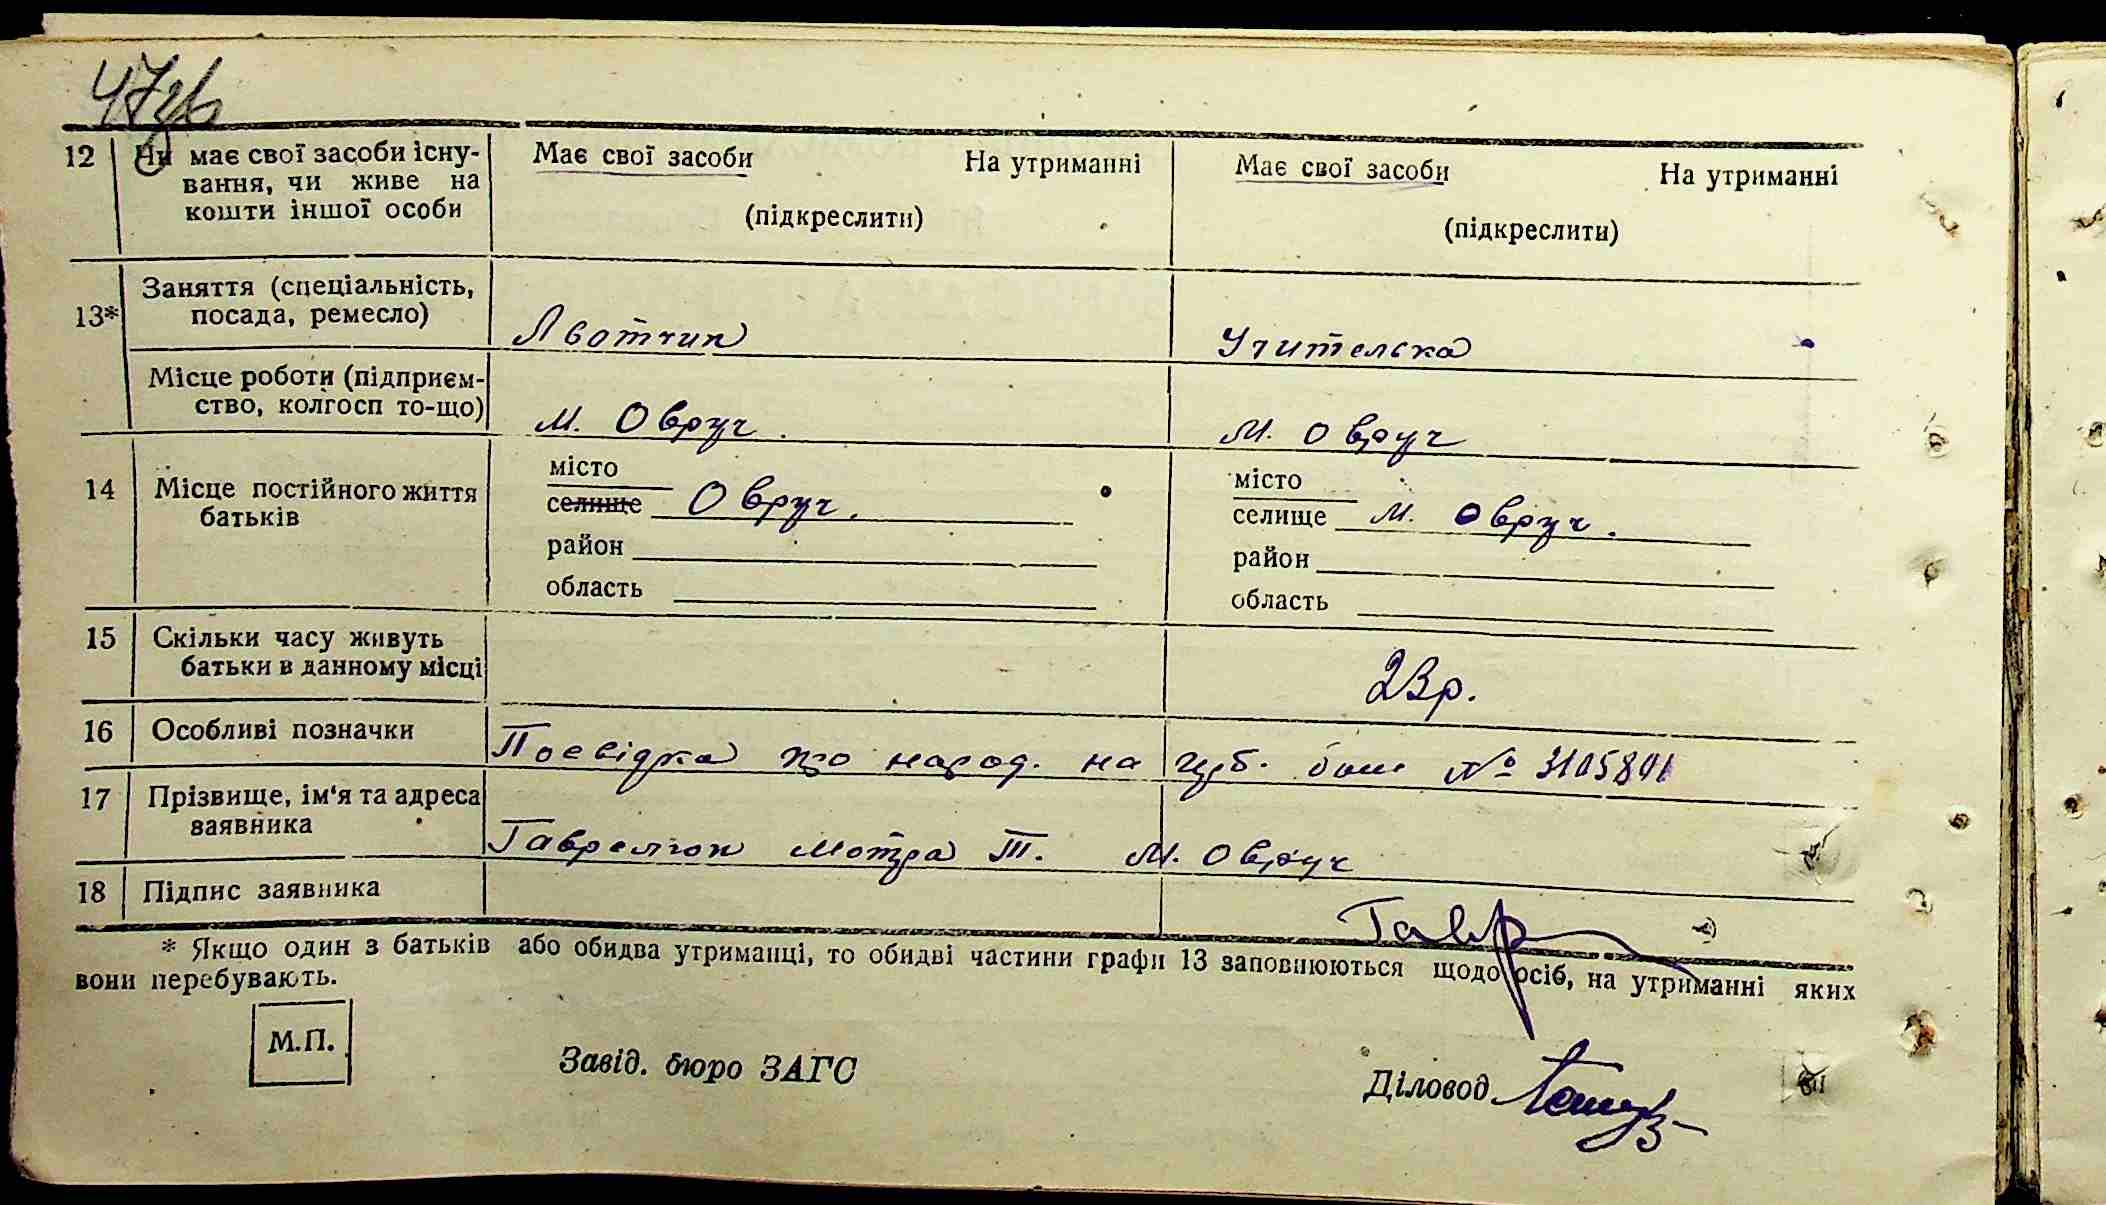 47зв
12 Чи має свої засоби існу-
вання, чи живе на
кошти іншої особи
Має свої засоби На утриманні
(підкреслити)
Має свої засоби На утриманні
(підкреслити)
13* Заняття (спеціальність,
посада, ремесло)
Льотчик
Учителька
Місце роботи (підприєм-
ство, колгосп то-що)
м. Овруч.
м. Овруч
14 Місце постійного життя
батьків
місто
селище Овруч.
район
область
місто
селище м. Овруч.
район
область
15 Скільки часу живуть
батьки в данному місці
23р.
16 Особливі позначки
Посвідка про народ. на
№ 3105801
17 Прізвище, ім'я та адреса
заявника
Мотря Т. м. Овруч
18 Підпис заявника
Гавр
* Якщо один з батьків або обидва утриманці, то обидві частини графи 13 заповнюються щодо осіб, на утриманні яких
вони перебувають.
М.П.
Завід. бюро ЗАГС
Діловод